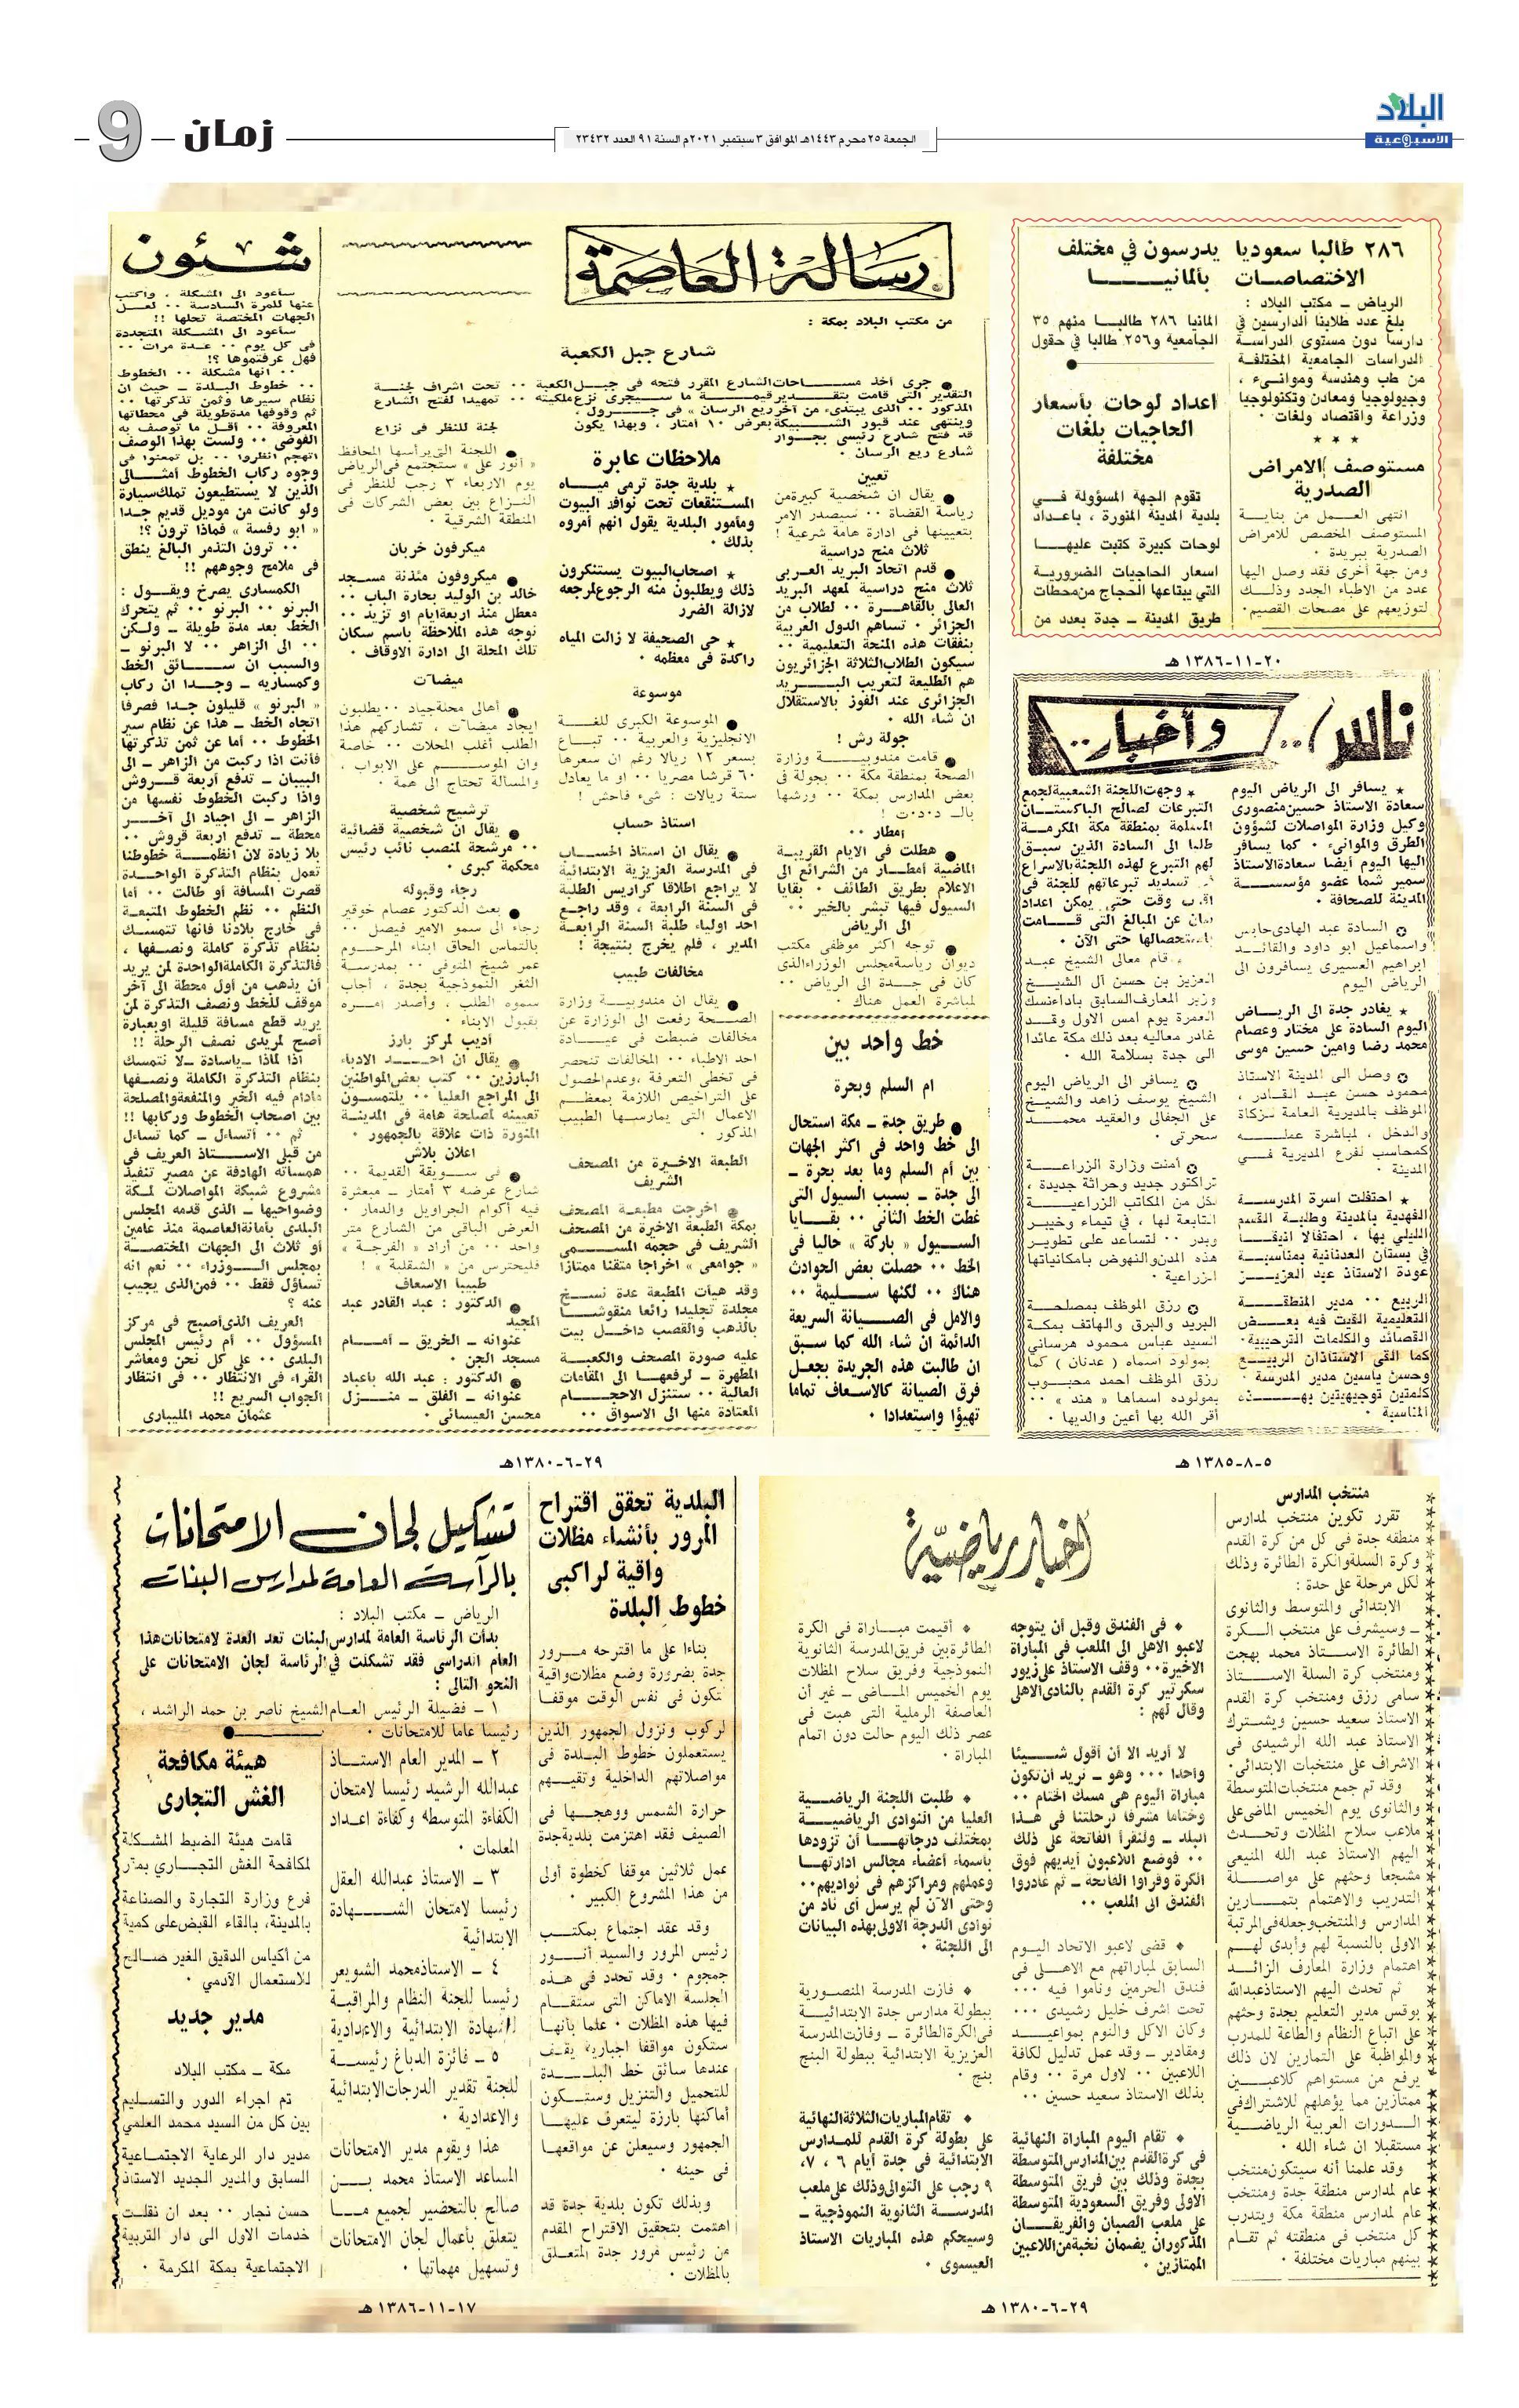 البلاد
الأسبوعية
الجمعة ٢٥ محرم ١٤٤٣هـ الموافق ٣ سبتمبر ٢٠٢١م السنة ٩١ العدد ٢٣٤٣٢
زمان
9
٢٨٦ طالبا سعوديا يدرسون في مختلف
الاختصاصات بألمانيا
الرياض – مكتب البلاد :
بلغ عدد طلابنا الدارسين في
المانيا ٢٨٦ طالبا منهم ٣٥
دارسا دون مستوى الدراسة
الجامعية و٢٥٦ طالبا في حقول
الدراسات الجامعية المختلفة
من طب وهندسة وموانىء ،
وجيولوجيا ومعادن وتكنولوجيا
وزراعة واقتصاد ولغات ٠
مستوصف الامراض
الصدرية
انتهى العمل من بناية
المستوصف المخصص للامراض
الصدرية ببريدة ٠
ومن جهة أخرى فقد وصل اليها
عدد من الاطباء الجدد وذلك
لتوزيعهم على مصحات القصيم٠
اعداد لوحات بأسعار
الحاجيات بلغات
مختلفة
تقوم الجهة المسؤولة في
بلدية المدينة المنورة ، باعداد
لوحات كبيرة كتبت عليها
اسعار الحاجيات الضرورية
التي يبتاعها الحجاج من محطات
طريق المدينة – جدة بعدد من
٢٠-١١-١٣٨٦ هـ
ناس .. وأخبار ..
★ يسافر الى الرياض اليوم
سعادة الاستاذ حسين منصورى
وكيل وزارة المواصلات لشؤون
الطرق والموانىء ٠ كما يسافر
اليها اليوم أيضا سعادة الاستاذ
سمير شما عضو مؤسسة
المدينة للصحافة ٠
✪ السادة عبد الهادى حابس
واسماعيل ابو داود والقائد
ابراهيم العسيرى يسافرون الى
الرياض اليوم
★ يغادر جدة الى الرياض
اليوم السادة على مختار وعصام
محمد رضا وامين حسين موسى
✪ وصل الى المدينة الاستاذ
محمود حسن عبد القادر ،
الموظف بالمديرية العامة للزكاة
والدخل ، لمباشرة عمله
كمحاسب لفرع المديرية في
المدينة ٠
★ احتفلت اسرة المدرسة
الفهدية بالمدينة وطلبة القسم
الليلي بها ، احتفالا انيقا
في بستان العدنانية بمناسبة
عودة الاستاذ عبد العزيز
الربيع ٠٠ مدير المنطقة
التعليمية القيت فيه بعض
القصائد والكلمات الترحيبية٠
كما القى الاستاذان الربيع
وحسن ياسين مدير المدرسة
كلمتين توجيهيتين بهذه
المناسبة ٠
★ وجهت اللجنة الشعبية لجمع
التبرعات لصالح الباكستان
المسلمة بمنطقة مكة المكرمة
طلبا الى السادة الذين سبق
لهم التبرع لهذه اللجنة بالاسراع
تسديد تبرعاتهم للجنة فى
وقت حتى يمكن اعداد
بيان عن المبالغ التى قامت
حتى الآن ٠
قام معالى الشيخ عبد
العزيز بن حسن آل الشيخ
وزير المعارف السابق باداء نسك
العمرة يوم امس الاول وقد
غادر معاليه بعد ذلك مكة عائدا
الى جدة بسلامة الله ٠
✪ يسافر الى الرياض اليوم
الشيخ يوسف زاهد والشيخ
على الجفالى والعقيد محمد
سحرتى ٠
✪ أمنت وزارة الزراعة
تراكتور جديد وحراثة جديدة ،
لكل من المكاتب الزراعية
التابعة لها ، في تيماء وخيبر
وبدر ٠٠ لتساعد على تطوير
هذه المدن والنهوض بامكانياتها
الزراعية ٠
✪ رزق الموظف بمصلحة
البريد والبرق والهاتف بمكة
السيد عباس محمود هرساني
بمولود أسماه ( عدنان ) كما
رزق الموظف احمد محبوب
بمولوده اسماها « هند » ٠٠
أقر الله بها أعين والديها ٠
٥-٨-١٣٨٥ هـ
رسالة العاصمة
من مكتب البلاد بمكة :
شارع جبل الكعبة
● جرى أخذ مساحات الشارع المقرر فتحه فى جبل الكعبة ٠٠ تحت اشراف لجنة
التقدير التى قامت بتقدير قيمة ما سيجرى نزع ملكيته ٠٠ تمهيدا لفتح الشارع
المذكور ٠٠ الذى يبتدىء من آخر ريع الرسان » فى جرول ،
وينتهى عند قبور الشبيكة بعرض ١٠ أمتار ، وبهذا يكون
قد فتح شارع رئيسى بجوار
شارع ريع الرسان ٠
تعيين
● يقال ان شخصية كبيرة من
رياسة القضاة ٠٠ سيصدر الامر
بتعيينها فى ادارة هامة شرعية !
ثلاث منح دراسية
● قدم اتحاد البريد العربى
ثلاث منح دراسية لمعهد البريد
العالى بالقاهرة ٠٠ لطلاب من
الجزائر ٠ تساهم الدول العربية
بنفقات هذه المنحة التعليمية ٠٠
سيكون الطلاب الثلاثة الجزائريون
هم الطليعة لتعريب البريد
الجزائرى عند الفوز بالاستقلال
ان شاء الله ٠
جولة رش !
● قامت مندوبية وزارة
الصحة بمنطقة مكة ٠٠ بجولة فى
بعض المدارس بمكة ٠٠ ورشها
بالـ د٠د٠ت !
أمطار ٠٠
● هطلت فى الايام القريبة
الماضية أمطار من الشرائع الى
الاعلام بطريق الطائف ٠ بقايا
السيول فيها تبشر بالخير ٠٠
الى الرياض
● توجه اكثر موظفى مكتب
ديوان رياسة مجلس الوزراء الذى
كان فى جدة الى الرياض ٠٠
لمباشرة العمل هناك ٠
خط واحد بين
ام السلم وبحرة
● طريق جدة – مكة استحال
الى خط واحد فى اكثر الجهات
بين أم السلم وما بعد بحرة –
الى جدة – بسبب السيول التى
غطت الخط الثانى ٠٠ بقايا
السيول « باركة » حاليا فى
الخط ٠٠ حصلت بعض الحوادث
هناك ٠٠ لكنها سليمة ٠٠
والامل فى الصيانة السريعة
الدائمة ان شاء الله كما سبق
ان طالبت هذه الجريدة بجعل
فرق الصيانة كالاسعاف تماما
تهيؤا واستعدادا ٠
ملاحظات عابرة
★ بلدية جدة ترمى مياه
المستنقعات تحت نوافذ البيوت
ومأمور البلدية يقول انهم أمروه
بذلك ٠
★ اصحاب البيوت يستنكرون
ذلك ويطلبون منه الرجوع لمرجعه
لازالة الضرر
★ حى الصحيفة لا زالت المياه
راكدة فى معظمه ٠
موسوعة
● الموسوعة الكبرى للغة
الانجليزية والعربية ٠٠ تباع
بسعر ١٢ ريالا رغم ان سعرها
٦٠ قرشا مصريا ٠٠ او ما يعادل
ستة ريالات : شىء فاحش !
استاذ حساب
● يقال ان استاذ الحساب
فى المدرسة العزيزية الابتدائية
لا يراجع اطلاقا كراريس الطلبة
فى السنة الرابعة ، وقد راجع
احد اولياء طلبة السنة الرابعة
المدير ، فلم يخرج بنتيجة !
مخالفات طبيب
● يقال ان مندوبية وزارة
الصحة رفعت الى الوزارة عن
مخالفات ضبطت فى عيادة
احد الاطباء ٠٠ المخالفات تنحصر
فى تخطى التعرفة ، وعدم الحصول
على التراخيص اللازمة بمعظم
الاعمال التى يمارسها الطبيب
المذكور ٠
الطبعة الاخيرة من المصحف
الشريف
● اخرجت مطبعة المصحف
بمكة الطبعة الاخيرة من المصحف
الشريف فى حجمه المسمى
« جوامعى » اخراجا متقنا ممتازا
وقد هيأت المطبعة عدة نسخ
مجلدة تجليدا رائعا منقوشا
بالذهب والقصب داخل بيت
عليه صورة المصحف والكعبة
المطهرة – لرفعها الى المقامات
العالية ٠٠ ستنزل الاحجام
المعتادة منها الى الاسواق ٠٠
لجنة للنظر فى نزاع
● اللجنة التى يرأسها المحافظ
« أنور على » ستجتمع فى الرياض
يوم الاربعاء ٣ رجب للنظر فى
النزاع بين بعض الشركات فى
المنطقة الشرقية ٠
ميكرفون خربان
● ميكروفون مئذنة مسجد
خالد بن الوليد بحارة الباب ٠٠
معطل منذ اربعة ايام او تزيد ٠٠
نوجه هذه الملاحظة باسم سكان
تلك المحلة الى ادارة الاوقاف ٠
ميضآت
● أهالى محلة جياد ٠٠ يطلبون
ايجاد ميضآت ، تشاركهم هذا
الطلب أغلب المحلات ٠٠ خاصة
وان الموسم على الابواب ،
والمسألة تحتاج الى همة ٠
ترشيح شخصية
● يقال ان شخصية قضائية
٠٠ مرشحة لمنصب نائب رئيس
محكمة كبرى ٠
رجاء وقبوله
● بعث الدكتور عصام خوقير
رجاء الى سمو الامير فيصل ٠٠
بالتماس الحاق ابناء المرحوم
عمر شيخ المتوفى ٠٠ بمدرسة
الثغر النموذجية بجدة ، أجاب
سموه الطلب ، وأصدر أمره
بقبول الابناء ٠
أديب لمركز بارز
● يقال ان احد الادباء
البارزين ٠٠ كتب بعض المواطنين
الى المراجع العليا ٠٠ يلتمسون
تعيينه لمصلحة هامة فى المدينة
المنورة ذات علاقة بالجمهور ٠
اعلان بلاش
● فى سويقة القديمة ٠٠
شارع عرضه ٣ أمتار – مبعثرة
فيه أكوام الجراويل والدمار ٠
العرض الباقى من الشارع متر
واحد ٠٠ من أراد « الفرجة »
فليحترس من « الشقلبة » !
طبيبا الاسعاف
● الدكتور : عبد القادر عبد
المجيد
عنوانه – الخريق – أمام
مسجد الجن ٠
● الدكتور : عبد الله باعباد
عنوانه – الفلق – منزل
محسن العيسائى ٠
شئون
سأعود الى المشكلة ، وأكتب
عنها للمرة السادسة ٠٠ لعل
الجهات المختصة تحلها !!
سأعود الى المشكلة المتجددة
فى كل يوم ٠٠ عدة مرات ٠٠
فهل عرفتموها ؟!
٠٠ انها مشكلة ٠٠ الخطوط
٠٠ خطوط البلدة – حيث ان
نظام سيرها وثمن تذكرتها ٠٠
ثم وقوفها مدة طويلة فى محطاتها
المعروفة ٠٠ أقل ما توصف به
الفوضى ٠٠ ولست بهذا الوصف
اتهجم انظروا ٠٠ بل تمعنوا فى
وجوه ركاب الخطوط أمثالى
الذين لا يستطيعون تملك سيارة
ولو كانت من موديل قديم جدا
« ابو رفسة » فماذا ترون ؟!
٠٠ ترون التذمر البالغ ينطق
فى ملامح وجوههم !!
الكمسارى يصرخ ويقول :
البرنو ٠٠ البرنو ٠٠ ثم يتحرك
الخط بعد مدة طويلة – ولكن
٠٠ الى الزاهر ٠٠ لا البرنو –
والسبب ان سائق الخط
وكمساريه – وجدا ان ركاب
« البرنو » قليلون جدا فصرفا
اتجاه الخط – هذا عن نظام سير
الخطوط ٠٠ أما عن ثمن تذكرتها
فأنت اذا ركبت من الزاهر – الى
البيبان – تدفع أربعة قروش
واذا ركبت الخطوط نفسها من
الزاهر – الى اجياد الى آخر
محطة – تدفع أربعة قروش ٠٠
بلا زيادة لان انظمة خطوطنا
تعمل بنظام التذكرة الواحدة
قصرت المسافة أو طالت ٠٠ أما
النظم ٠٠ نظم الخطوط المتبعة
فى خارج بلادنا فانها تتمسك
بنظام تذكرة كاملة ونصفها ،
فالتذكرة الكاملة الواحدة لمن يريد
أن يذهب من أول محطة الى آخر
موقف للخط ونصف التذكرة لمن
يريد قطع مسافة قليلة او بعبارة
أصح لمريدى نصف الرحلة !!
اذا لماذا – ياسادة – لا نتمسك
بنظام التذكرة الكاملة ونصفها
مادام فيه الخير والمنفعة والمصلحة
بين اصحاب الخطوط وركابها !!
ثم ٠٠ أتساءل – كما تساءل
من قبلى الاستاذ العريف فى
همساته الهادفة عن مصير تنفيذ
مشروع شبكة المواصلات لمكة
وضواحيها – الذى قدمه المجلس
البلدى بأمانة العاصمة منذ عامين
أو ثلاث الى الجهات المختصة
بمجلس الوزراء ٠٠ نعم انه
تساؤل فقط ٠٠ فمن الذى يجيب
عنه ؟
العريف الذى أصبح فى مركز
المسؤول ٠٠ أم رئيس المجلس
البلدى ٠٠ على كل نحن ومعاشر
القراء فى الانتظار ٠٠ فى انتظار
الجواب السريع !!
عثمان محمد المليبارى
٢٩-٦-١٣٨٠هـ
منتخب المدارس
تقرر تكوين منتخب لمدارس
منطقة جدة فى كل من كرة القدم
وكرة السلة والكرة الطائرة وذلك
لكل مرحلة على حدة :
الابتدائى والمتوسط والثانوى
– وسيشرف على منتخب الكرة
الطائرة الاستاذ محمد بهجت
ومنتخب كرة السلة الاستاذ
سامى رزق ومنتخب كرة القدم
الاستاذ سعيد حسين ويشترك
الاستاذ عبد الله الرشيدى فى
الاشراف على منتخبات الابتدائى٠
وقد تم جمع منتخبات المتوسطة
والثانوى يوم الخميس الماضى على
ملاعب سلاح المظلات وتحدث
اليهم الاستاذ عبد الله المنيعى
مشجعا وحثهم على مواصلة
التدريب والاهتمام بتمارين
المدارس والمنتخب وجعله فى المرتبة
الاولى بالنسبة لهم وأبدى لهم
اهتمام وزارة المعارف الزائد
ثم تحدث اليهم الاستاذ عبدالله
بوقس مدير التعليم بجدة وحثهم
على اتباع النظام والطاعة للمدرب
والمواظبة على التمارين لان ذلك
يرفع من مستواهم كلاعبين
ممتازين مما يؤهلهم للاشتراك فى
الدورات العربية الرياضية
مستقبلا ان شاء الله ٠
وقد علمنا أنه سيتكون منتخب
عام لمدارس منطقة جدة ومنتخب
عام لمدارس منطقة مكة ويتدرب
كل منتخب فى منطقته ثم تقام
بينهم مباريات مختلفة ٠
أخبار رياضيّة
* فى الفندق وقبل أن يتوجه
لاعبو الاهلى الى الملعب فى المباراة
الاخيرة٠٠ وقف الاستاذ على زيور
سكرتير كرة القدم بالنادى الاهلى
وقال لهم :
لا أريد الا أن أقول شيئا
واحدا ٠٠٠ وهو – نريد أن تكون
مباراة اليوم هى مسك الختام ٠٠
وختاما مشرفا لرحلتنا فى هذا
البلد – ولنقرأ الفاتحة على ذلك
٠٠ فوضع اللاعبون أيديهم فوق
الكرة وقراوا الفاتحة – ثم غادروا
الفندق الى الملعب ٠٠
* قضى لاعبو الاتحاد اليوم
السابق لمباراتهم مع الاهلى فى
فندق الحرمين وناموا فيه ٠٠٠
تحت اشراف خليل رشيدى ٠٠٠
وكان الاكل والنوم بمواعيد
ومقادير – وقد عمل تدليل لكافة
اللاعبين ٠٠ لاول مرة ٠٠ وقام
بذلك الاستاذ سعيد حسين ٠٠
* تقام اليوم المباراة النهائية
فى كرة القدم بين المدارس المتوسطة
بجدة وذلك بين فريق المتوسطة
الاولى وفريق السعودية المتوسطة
على ملعب الصبان والفريقان
المذكوران يضمان نخبة من اللاعبين
الممتازين ٠
* أقيمت مباراة فى الكرة
الطائرة بين فريق المدرسة الثانوية
النموذجية وفريق سلاح المظلات
يوم الخميس الماضى – غير أن
العاصفة الرملية التى هبت فى
عصر ذلك اليوم حالت دون اتمام
المباراة ٠
* طلبت اللجنة الرياضية
العليا من النوادى الرياضية
بمختلف درجاتها أن تزودها
بأسماء أعضاء مجالس ادارتها
وعملهم ومراكزهم فى نواديهم٠٠
وحتى الآن لم يرسل أى ناد من
نوادى الدرجة الاولى بهذه البيانات
الى اللجنة ٠
* فازت المدرسة المنصورية
ببطولة مدارس جدة الابتدائية
فى الكرة الطائرة – وفازت المدرسة
العزيزية الابتدائية ببطولة البنج
بنج ٠
* تقام المباريات الثلاثة النهائية
على بطولة كرة القدم للمدارس
الابتدائية فى جدة أيام ٦ ، ٧،
٩ رجب على التوالى وذلك على ملعب
المدرسة الثانوية النموذجية –
وسيحكم هذه المباريات الاستاذ
العيسوى ٠
٢٩-٦-١٣٨٠ هـ
البلدية تحقق اقتراح
المرور بأنشاء مظلات
واقية لراكبى
خطوط البلدة
بناءا على ما اقترحه مرور
جدة بضرورة وضع مظلات واقية
تكون فى نفس الوقت موقفا
لركوب ونزول الجمهور الذين
يستعملون خطوط البلدة فى
مواصلاتهم الداخلية وتقيهم
حرارة الشمس ووهجها فى
الصيف فقد اهتزمت بلدية جدة
عمل ثلاثين موقفا كخطوة أولى
من هذا المشروع الكبير ٠
وقد عقد اجتماع بمكتب
رئيس المرور والسيد أنور
جمجوم ٠ وقد تحدد فى هذه
الجلسة الاماكن التى ستقام
فيها هذه المظلات ٠ علما بأنها
ستكون مواقفا اجبارية يقف
عندها سائق خط البلدة
للتحميل والتنزيل وستكون
أماكنها بارزة ليتعرف عليها
الجمهور وسيعلن عن مواقعها
فى حينه ٠
وبذلك تكون بلدية جدة قد
اهتمت بتحقيق الاقتراح المقدم
من رئيس مرور جدة المتعلق
بالمظلات ٠
تشكيل لجان الامتحانات
بالرآسة العامة لمدارس البنات
الرياض – مكتب البلاد :
بدأت الرئاسة العامة لمدارس البنات تعد العدة لامتحانات هذا
العام الدراسى فقد تشكلت في الرئاسة لجان الامتحانات على
النحو التالى :
١ – فضيلة الرئيس العام الشيخ ناصر بن حمد الراشد ،
رئيسا عاما للامتحانات ٠
٢ – المدير العام الاستاذ
عبدالله الرشيد رئيسا لامتحان
الكفاءة المتوسطه وكفاءة اعداد
المعلمات ٠
٣ – الاستاذ عبدالله العقل
رئيسا لامتحان الشهادة
الابتدائية
٤ – الاستاذ محمد الشويعر
رئيسا للجنة النظام والمراقبة
للشهادة الابتدائية والاعدادية
٥ – فائزة الدباغ رئيسة
للجنة تقدير الدرجات الابتدائية
والاعدادية ٠
هذا ويقوم مدير الامتحانات
المساعد الاستاذ محمد بن
صالح بالتحضير لجميع ما
يتعلق بأعمال لجان الامتحانات
وتسهيل مهماتها ٠
هيئة مكافحة
الغش التجارى
قامت هيئة الضبط المشكلة
لمكافحة الغش التجاري بمقر
فرع وزارة التجارة والصناعة
بالمدينة، بالقاء القبض على كمية
من أكياس الدقيق الغير صالح
للاستعمال الآدمي ٠
مدير جديد
مكة – مكتب البلاد
تم اجراء الدور والتسليم
بين كل من السيد محمد العلمي
مدير دار الرعاية الاجتماعية
السابق والمدير الجديد الاستاذ
حسن نجار ٠٠ بعد ان نقلت
خدمات الاول الى دار التربية
الاجتماعية بمكة المكرمة ٠
١٧-١١-١٣٨٦ هـ